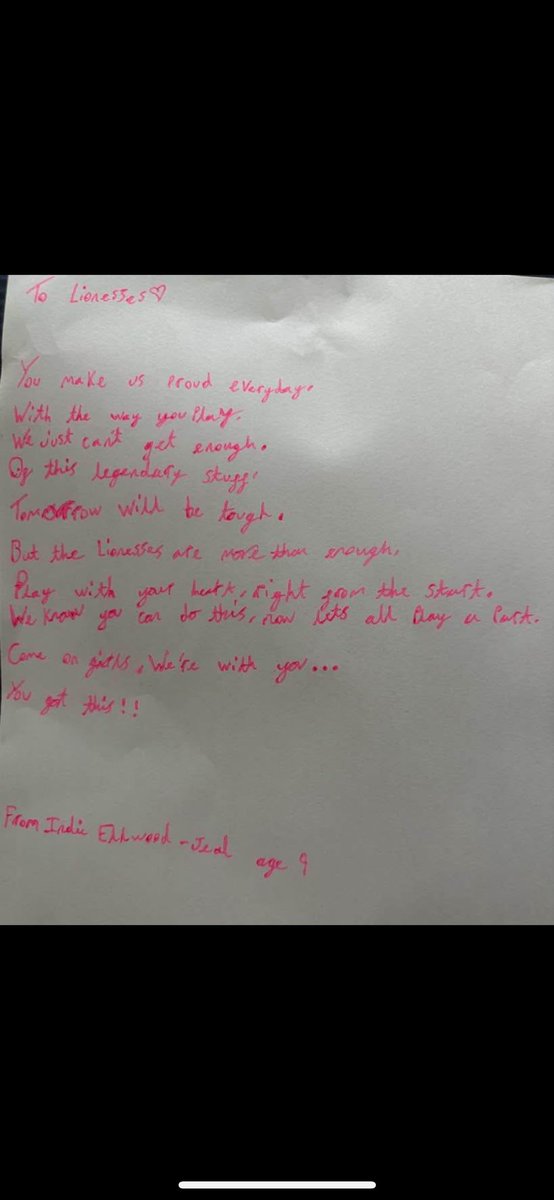 To Lionesses♡
You make us proud everyday.
With the way you play.
We just can't get enough.
Of this legendary stuff.
Tomorrow will be tough.
But the Lionesses are more than enough.
Play with your heart, right from the start.
We know you can do this, now lets all play a part.
Come on girls, We're with you...
You got this!!
From Indie -Jeal age 9